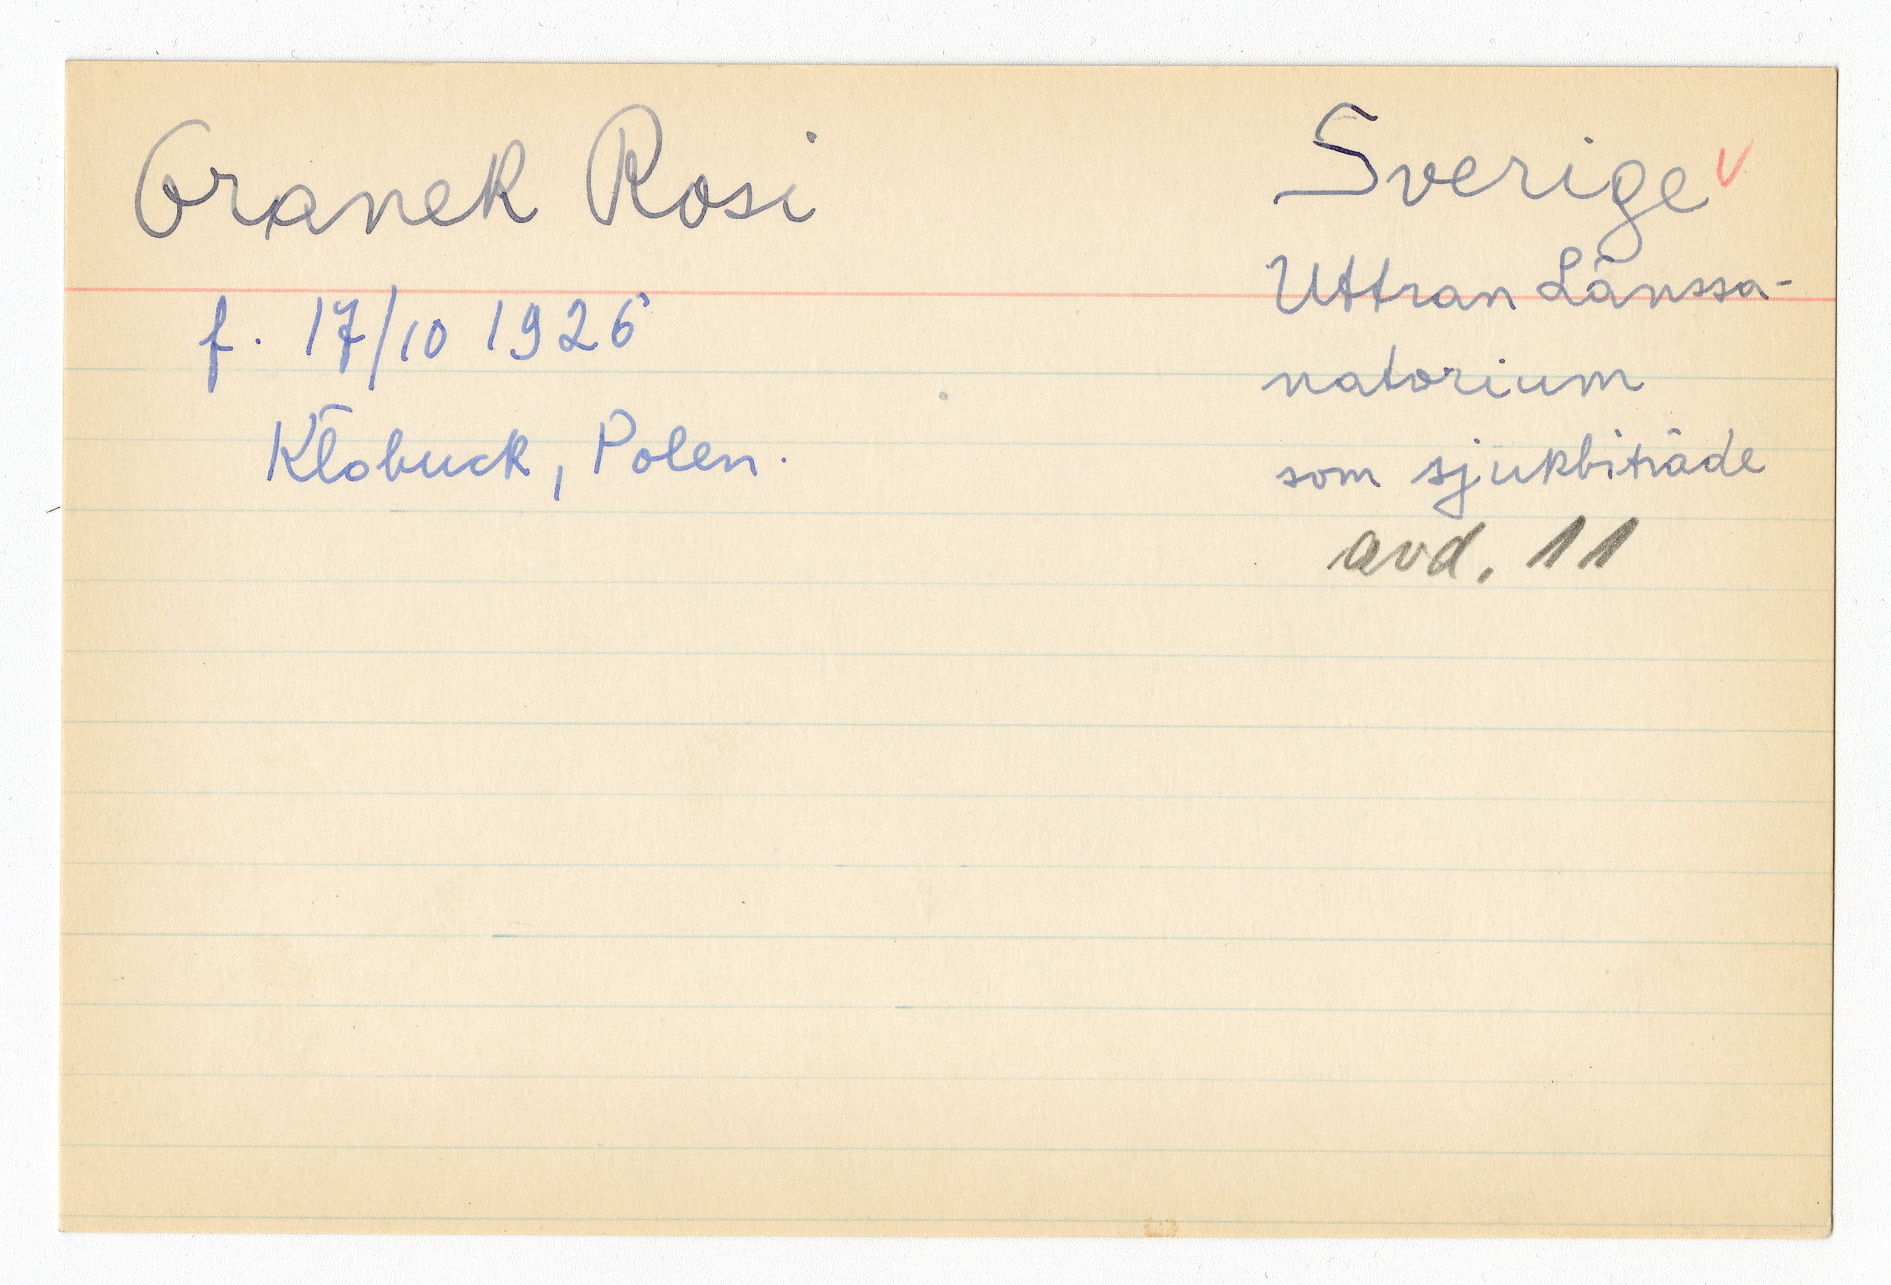 Granek Rosi
f. 17/10 1926
Kłobuck, Polen.
Sverige v
Uttran Länssa-
natorium
som sjukbiträde
avd. 11